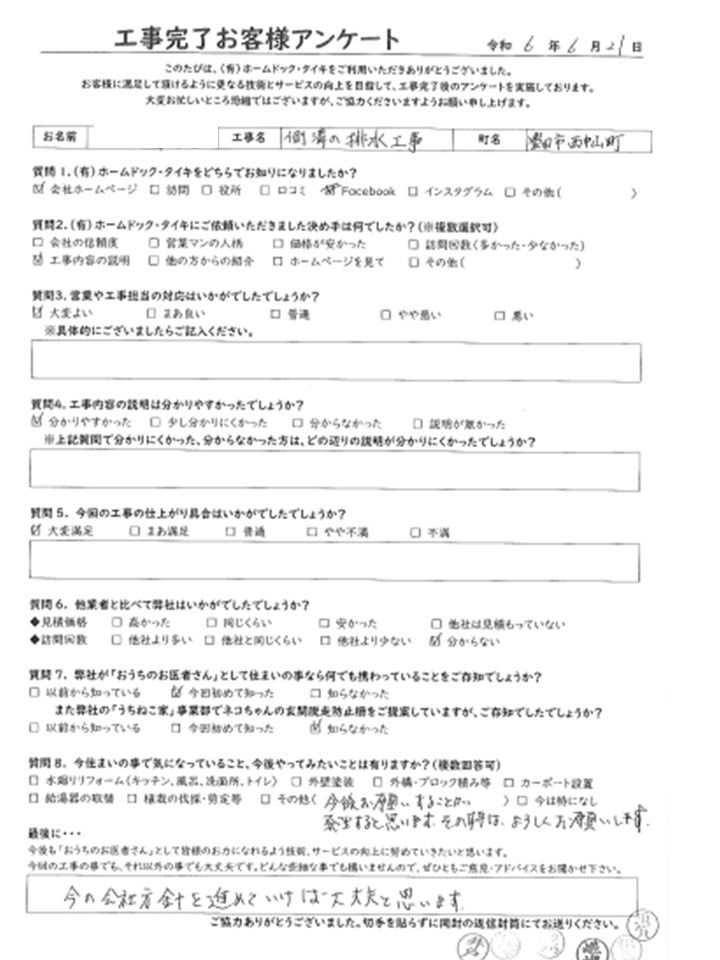 工事完了お客様アンケート 令和 6 年 6 月 21 日
このたびは、(有)ホームドック・タイキをご利用いただきありがとうございました。
お客様に満足して頂けるように更なる技術とサービスの向上を目指して、工事完了後のアンケートを実施しております。
大変お忙しいところ恐縮ではございますが、ご協力くださいますようお願い申し上げます。
お名前 工事名 側溝の排水工事 町名 豊田市西中山町
質問1.(有)ホームドック・タイキをどちらでお知りになりましたか?
☑ 会社ホームページ □ 訪問 □ 役所 □ 口コミ ☑ Facebook □ インスタグラム □ その他( )
質問2.(有)ホームドック・タイキにご依頼いただきました決め手は何でしたか?(※複数選択可)
□ 会社の信頼度 □ 営業マンの人柄 □ 価格が安かった □ 訪問回数(多かった・少なかった)
☑ 工事内容の説明 □ 他の方からの紹介 □ ホームページを見て □ その他( )
質問3.営業や工事担当の対応はいかがでしたでしょうか?
☑ 大変よい □ まあ良い □ 普通 □ やや悪い □ 悪い
※具体的にございましたらご記入ください。
質問4.工事内容の説明は分かりやすかったでしょうか?
☑ 分かりやすかった □ 少し分かりにくかった □ 分からなかった □ 説明が無かった
※上記質問で分かりにくかった、分からなかった方は、どの辺りの説明が分かりにくかったでしょうか?
質問5.今回の工事の仕上がり具合はいかがでしたでしょうか?
☑ 大変満足 □ まあ満足 □ 普通 □ やや不満 □ 不満
質問6.他業者と比べて弊社はいかがでしたでしょうか?
◆見積価格 □ 高かった □ 同じくらい □ 安かった □ 他社は見積もっていない
◆訪問回数 □ 他社より多い □ 他社と同じくらい □ 他社より少ない ☑ 分からない
質問7.弊社が「おうちのお医者さん」として住まいの事なら何でも携わっていることをご存知でしょうか?
□ 以前から知っている ☑ 今回初めて知った □ 知らなかった
また弊社の「うちねこ家」事業部でネコちゃんの玄関脱走防止柵をご提案していますが、ご存知でしたでしょうか?
□ 以前から知っている □ 今回初めて知った ☑ 知らなかった
質問8.今住まいの事で気になっていること、今後やってみたいことは有りますか?(複数回答可)
□ 水廻りリフォーム(キッチン、風呂、洗面所、トイレ) □ 外壁塗装 □ 外構・ブロック積み等 □ カーポート設置
□ 給湯器の取替 □ 植栽の伐採・剪定等 □ その他( 今後お願いすることが ) □ 今は特になし
発生すると思います。その時は、よろしくお願いします。
最後に・・・
今後も「おうちのお医者さん」として皆様のお力になれるよう技術、サービスの向上に努めていきたいと思います。
今回の工事の事でも、それ以外の事でも大丈夫です。どんな些細な事でも構いませんので、ぜひともご意見・アドバイスをお聞かせ下さい。
今の会社方針を進めていけば大丈夫と思います。
ご協力ありがとうございました。切手を貼らずに同封の返信封筒にてお送りください。